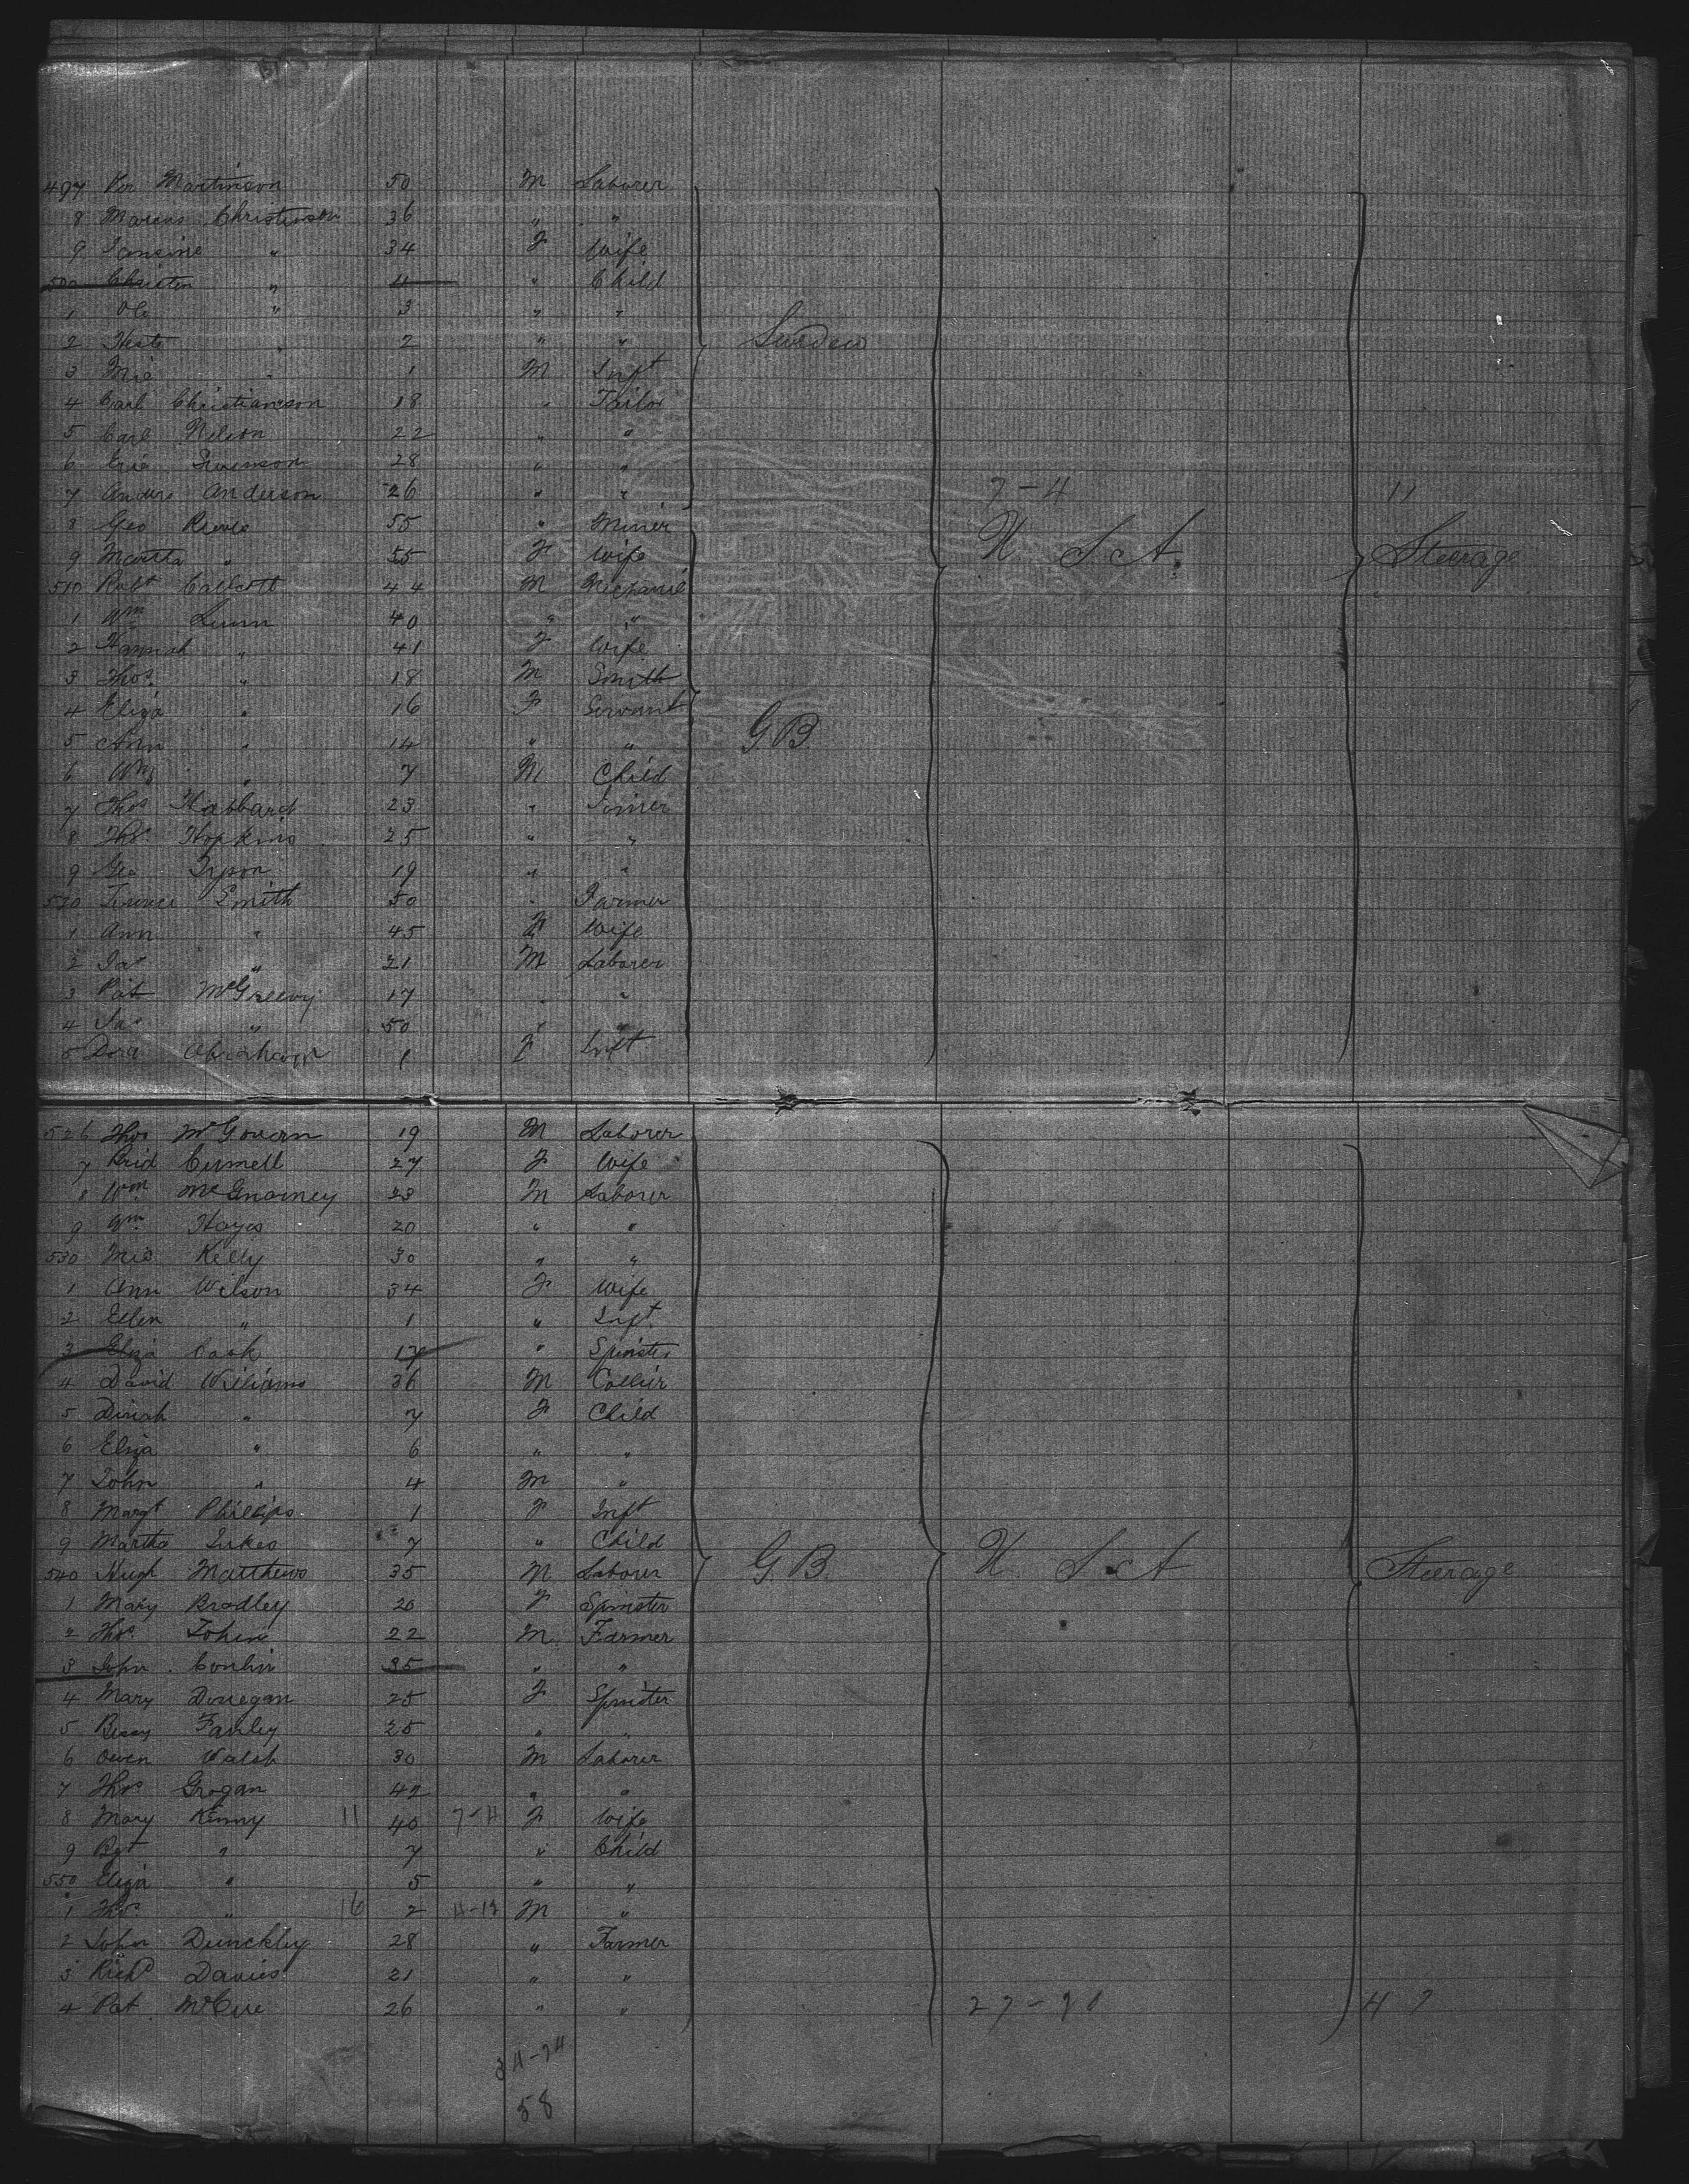 497 Per Martinson 50 M Laborer
8 Marcus Christenson 36 " "
9 " 34 F Wife
500 Christen " 4 " Child
1 Ole " 3 " "
2 " 2 " " Sweden
3 " 1 M Inft
4 Carl Christianson 18 " Tailor
5 Carl Nelson 22 " "
6 Eric Swenson 28 " "
7 Anders Anderson 26 " " 7-4 11
8 Geo 55 " Miner U S A Steerage
9 Martha " 55 F Wife
510 Robt Callcott 44 M Mechanic
1 Wm Lunn 40 " "
2 Hannah " 41 F Wife
3 Thos " 18 M Smith
4 Eliza " 16 F Servant G.B.
5 Ann " 14 " "
6 Wm " 7 M Child
7 Thos Habbard 23 " Joiner
8 Thos Hopkins 25 " "
9 Geo Tyson 19 " "
520 Smith 50 " Farmer
1 Ann " 45 F Wife
2 Jas " 21 M Laborer
3 Pat McGreevy 17 " "
4 Jas " 50 " "
5 Dora Abraham 1 F Inft
526 Thos McGovern 19 M Laborer
7 Brid 27 F Wife
8 Wm 23 M Laborer
9 Wm Hayes 20 " "
530 Kelly 30 " "
1 Ann Wilson 34 F Wife
2 Ellen " 1 " Inft
3 Eliza Cook 17 " Spinster
4 David Williams 36 M Collier
5 Dinah " 7 F Child
6 Eliza " 6 " "
7 John " 4 M "
8 Margt Phillips 1 F Inft
9 Martha 7 " Child
540 Hugh Matthews 35 M Laborer G.B. U S A Steerage
1 Mary Bradley 20 F Spinster
2 Thos 22 M Farmer
3 John Conlin 35 " "
4 Mary Donegan 25 F Spinster
5 Bessy 25 " "
6 Owen Walsh 30 M Laborer
7 Thos Grogan 42 " "
8 Mary Kenny 11 40 7-4 F Wife
9 Bgt " 7 " Child
550 Eliza " 5 " "
1 Thos " 16 2 4-12 M "
2 John Dunckley 28 " Farmer
3 Richd Davies 21 " "
4 Pat McCue 26 " " 27-20 47
34-24
58